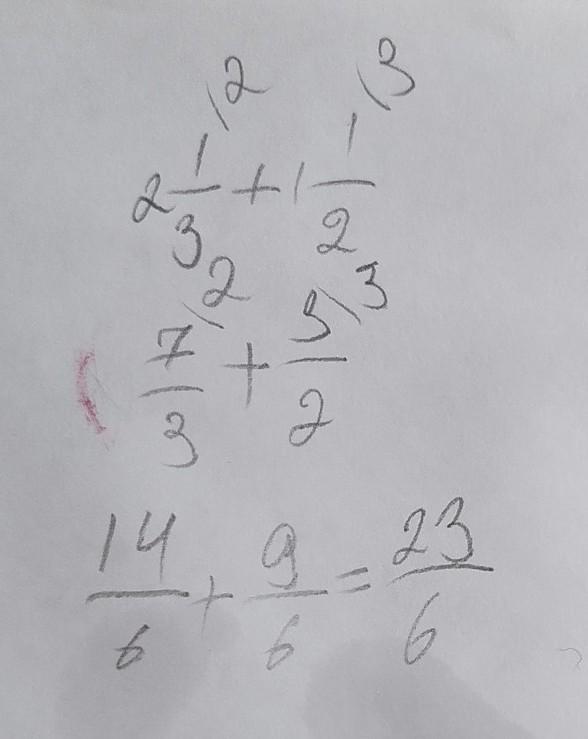 2 1/3 \2 + 1 1/2 \3
7/3 \2 + 3/2 \3
14/6 + 9/6 = 23/6